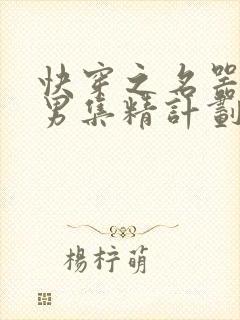 快穿之名器
男集精計劃
楊梓萌